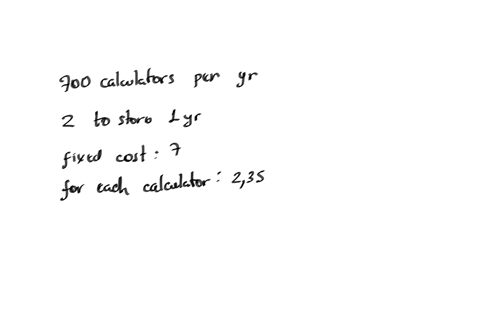 700 calculators per yr
2 to store 1 yr
fixed cost : 7
for each calculator : 2,35